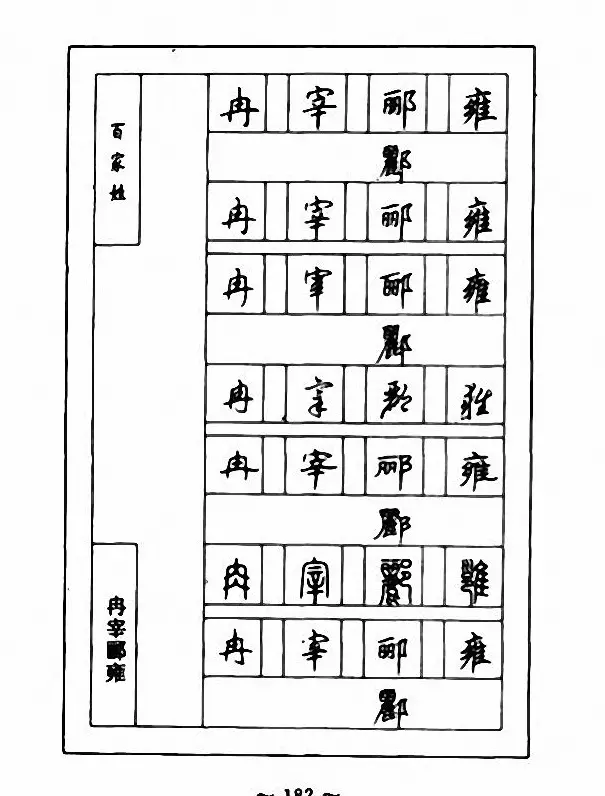 百家姓
冉宰郦雍
冉 宰 郦 雍
酈
冉 宰 郦 雍
冉 宰 郦 雍
酈
冉 宰 郦 雍
冉 宰 郦 雍
酈
冉 宰 酈 雍
冉 宰 郦 雍
酈
~ 182 ~